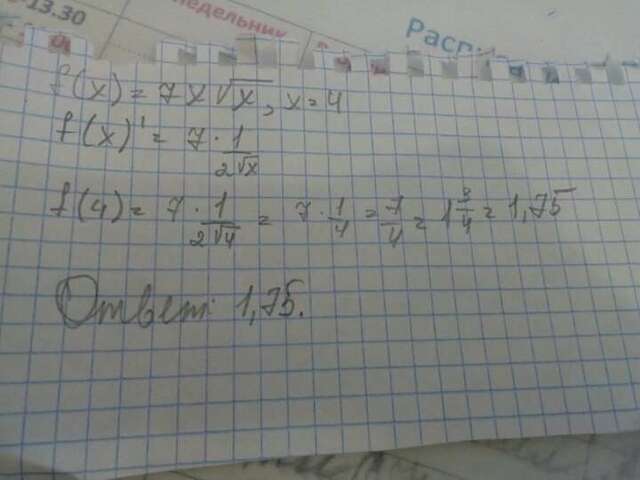 -13.30
недельник
Распи
f(x) = 7x√x, x=4
f(x)' = 7 · 1/2√x
f(4) = 7 · 1/2√4 = 7 · 1/4 = 7/4 = 1 3/4 = 1,75
Ответ: 1,75.